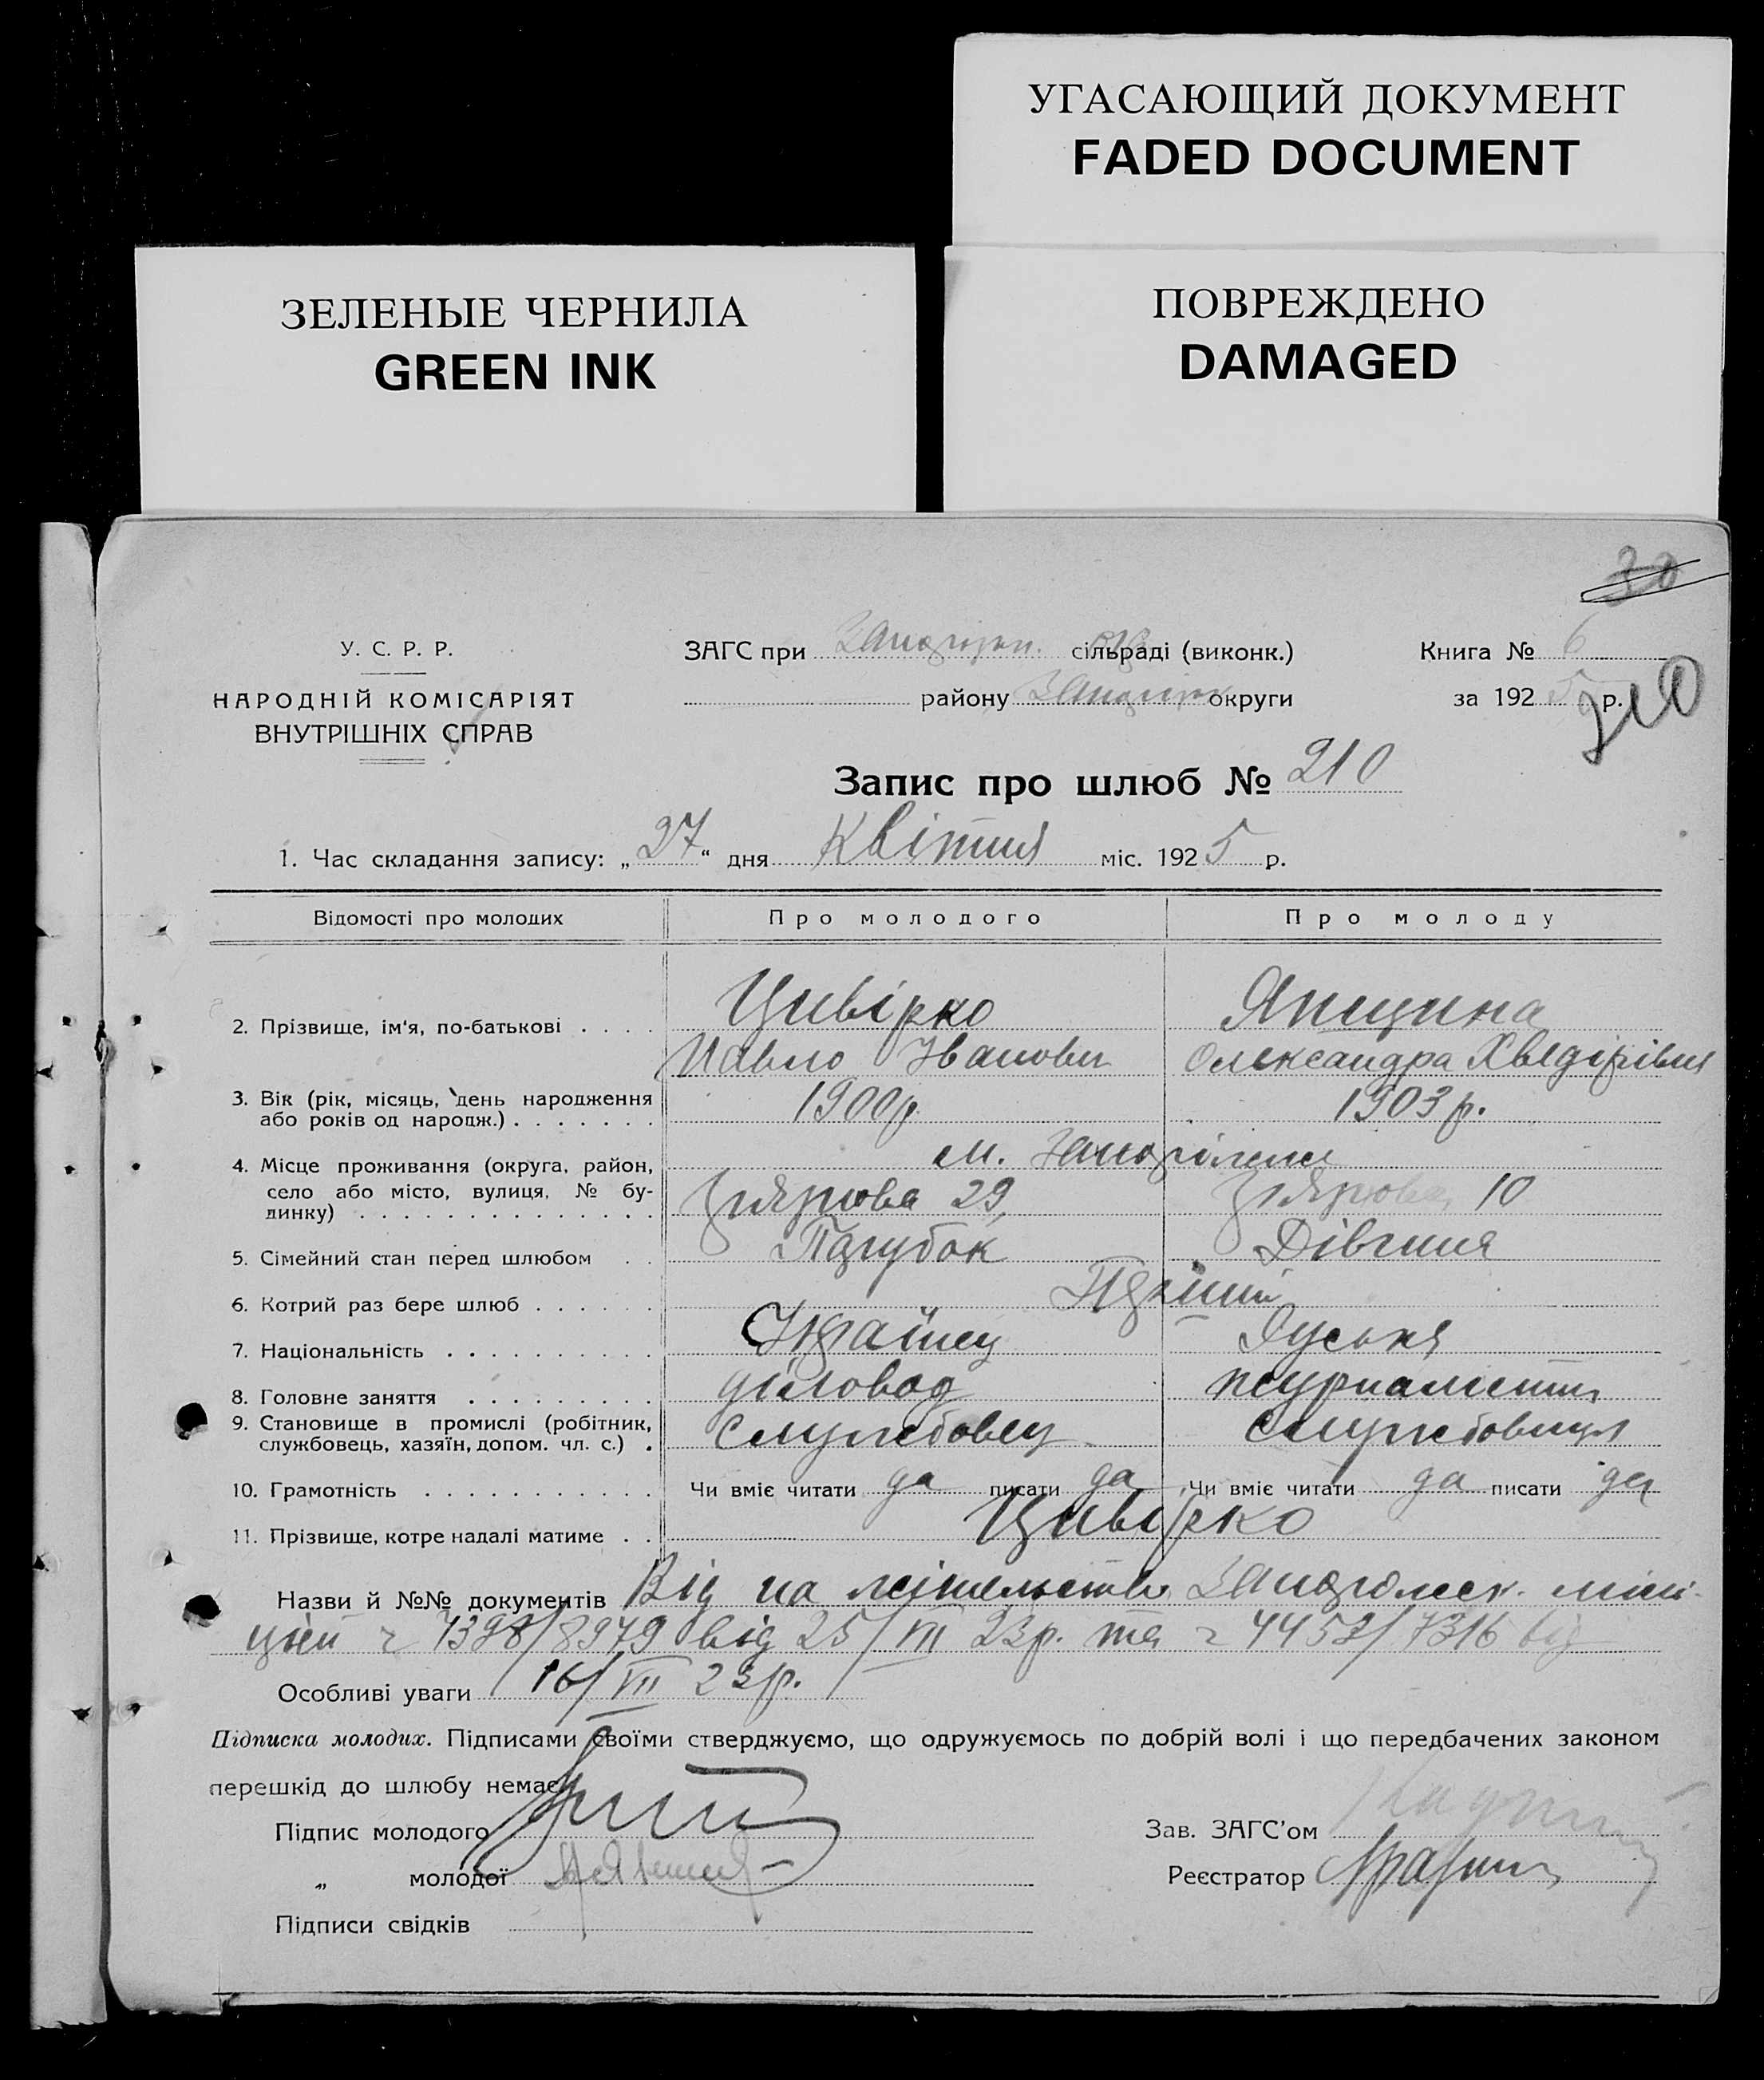 УГАСАЮЩИЙ ДОКУМЕНТ
FADED DOCUMENT
ЗЕЛЕНЫЕ ЧЕРНИЛА
GREEN INK
ПОВРЕЖДЕНО
DAMAGED
30
У. С. Р. Р.
НАРОДНІЙ КОМІСАРІЯТ
ВНУТРІШНІХ СПРАВ
ЗАГС при сільраді (виконк.)
району округи
Книга № 6
за 1925 р.
210
Запис про шлюб № 210
1. Час складання запису: „27“ дня Квітня міс. 1925 р.
Відомості про молодих Про молодого Про молоду
2. Прізвище, ім'я, по-батькові . . . . Цивірко Япицина
Павло Іванович Олександра Хведірівна
3. Вік (рік, місяць, день народження
або років од народж.) . . . . . . . 1900р. 1903 р.
4. Місце проживання (округа, район,
село або місто, вулиця, № бу-
динку) . . . . . . . . . . . . . .
м. Запоріжжя
29, 10
5. Сімейний стан перед шлюбом . . Парубок Дівчина
6. Котрий раз бере шлюб . . . . . . Перший
7. Національність . . . . . . . . . . Українец Руська
8. Головне заняття . . . . . . . . . діловод журналістка
9. Становище в промислі (робітник,
службовець, хазяїн, допом. чл. с.) . службовец службовиця
10. Грамотність . . . . . . . . . . . Чи вміє читати да писати да Чи вміє читати да писати да
11. Прізвище, котре надалі матиме . . Цивірко
Назви й №№ документів Від на жітельство міли-
цією ч 7398/8979 від 25/VII 23р. та ч 4452/7316 від
Особливі уваги 16/VII 23р.
Підписка молодих. Підписами своїми стверджуємо, що одружуємось по добрій волі і що передбачених законом
перешкід до шлюбу немає
Підпис молодого
„ молодої
Підписи свідків
Зав. ЗАГС'ом
Реєстратор